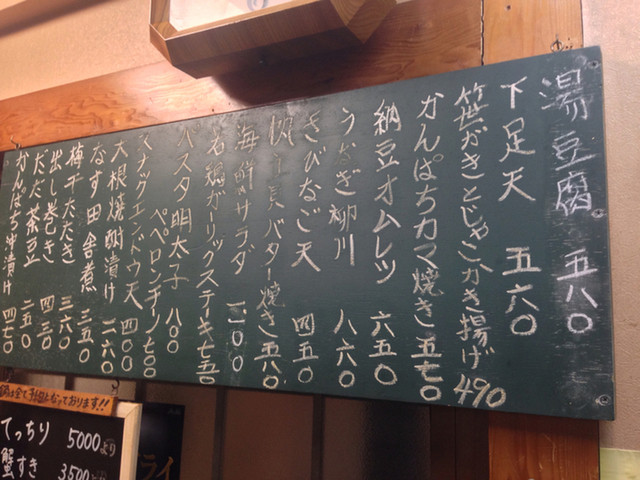 湯豆腐 五八〇
下足天 五六〇
笹がきとじゃこかき揚げ 490
かんぱちカマ焼き 五七〇
納豆オムレツ 六五〇
うなぎ柳川 八六〇
きびなご天 四五〇
帆立貝バター焼き 五八〇
海鮮サラダ 一一〇〇
若鶏ガーリックステーキ 七五〇
パスタ 明太子 八〇〇
ペペロンチーノ 七〇〇
スナックエンドウ天 四〇〇
大根焼酎漬け 二六〇
なす田舎煮 三五〇
梅干たたき 三六〇
出し巻き 四三〇
だだ茶豆 二五〇
かんぱち沖漬け 四七〇
鍋は全て予約となっております!!
てっちり 5000より
蟹すき 3500より
ライ